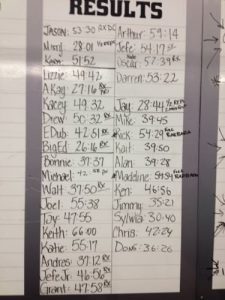 RESULTS
JASON: 53:30 RX
Missy: 28:01
51:52
Lizzie: 49:42
A.Ray: 27:16 RX
Kacey 49:32
Drew: 50:32 RX
EDub: 42:51 RX
Big Ed: 26:16 RX
Bonnie: 37:37
Michael: 42:58
Walt: 37:50 RX
Joel: 55:38
Joy: 47:55
Keith: 66:00
Katie: 55:17
Andres: 37:12 RX
Jefe Jr: 46:56 RX
Grant: 47:58 RX
Arthur: 59:14
Jefe: 54:17
Oscar: 57:39 RX
Darren: 53:22
Jay: 28:44
Mike: 39:45
Rick: 54:29
Kait: 39:50
Alan: 39:28
Madeline:
Ken: 46:56
Jimmy: 35:21
Sylwia: 30:40
Chris: 42:24
Dons: 36:26